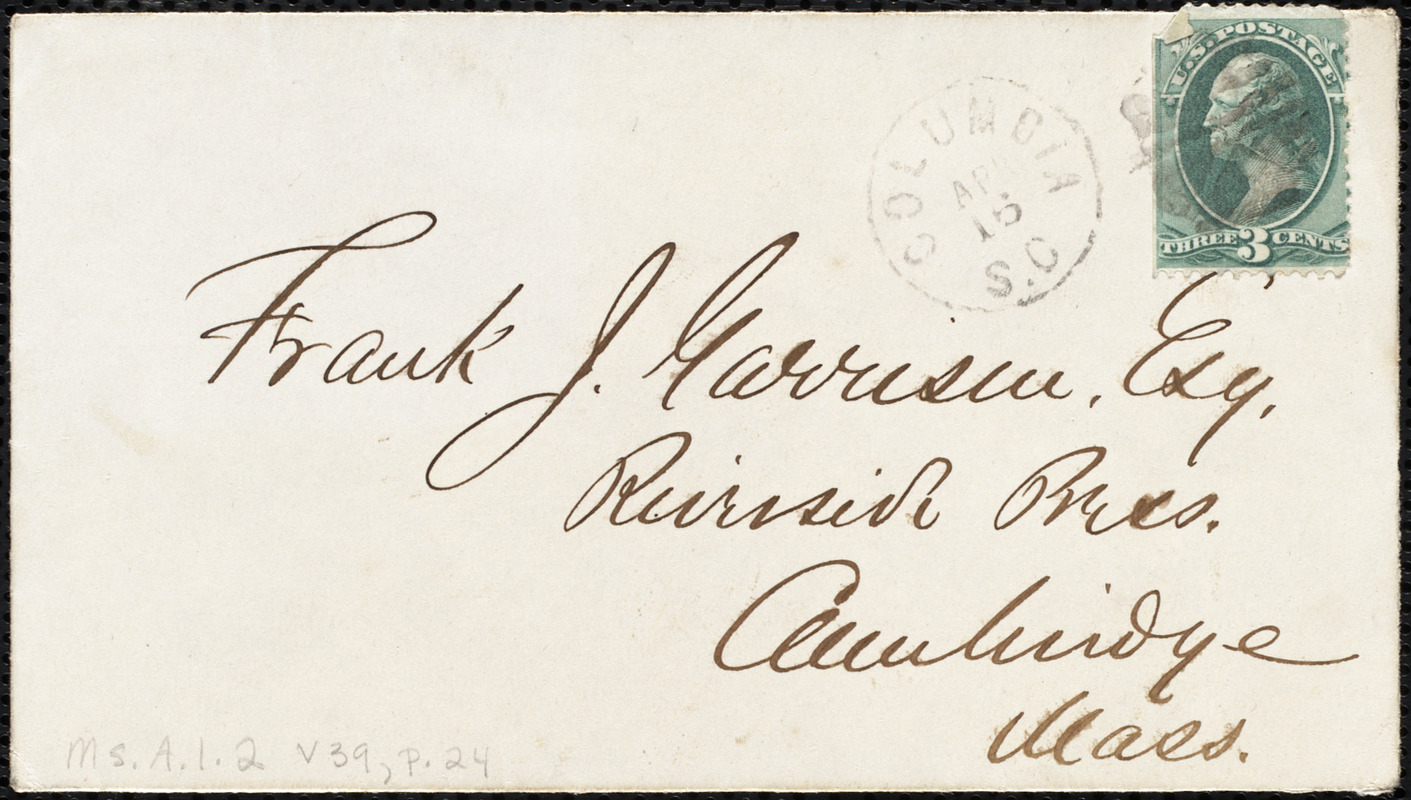 U.S. POSTAGE
THREE 3 CENTS
COLUMBIA
APR
16
S.C
Frank J. Garrison, Esq.
Riverside Press.
Cambridge
Mass.
Ms. A.1.2 v39, p.24